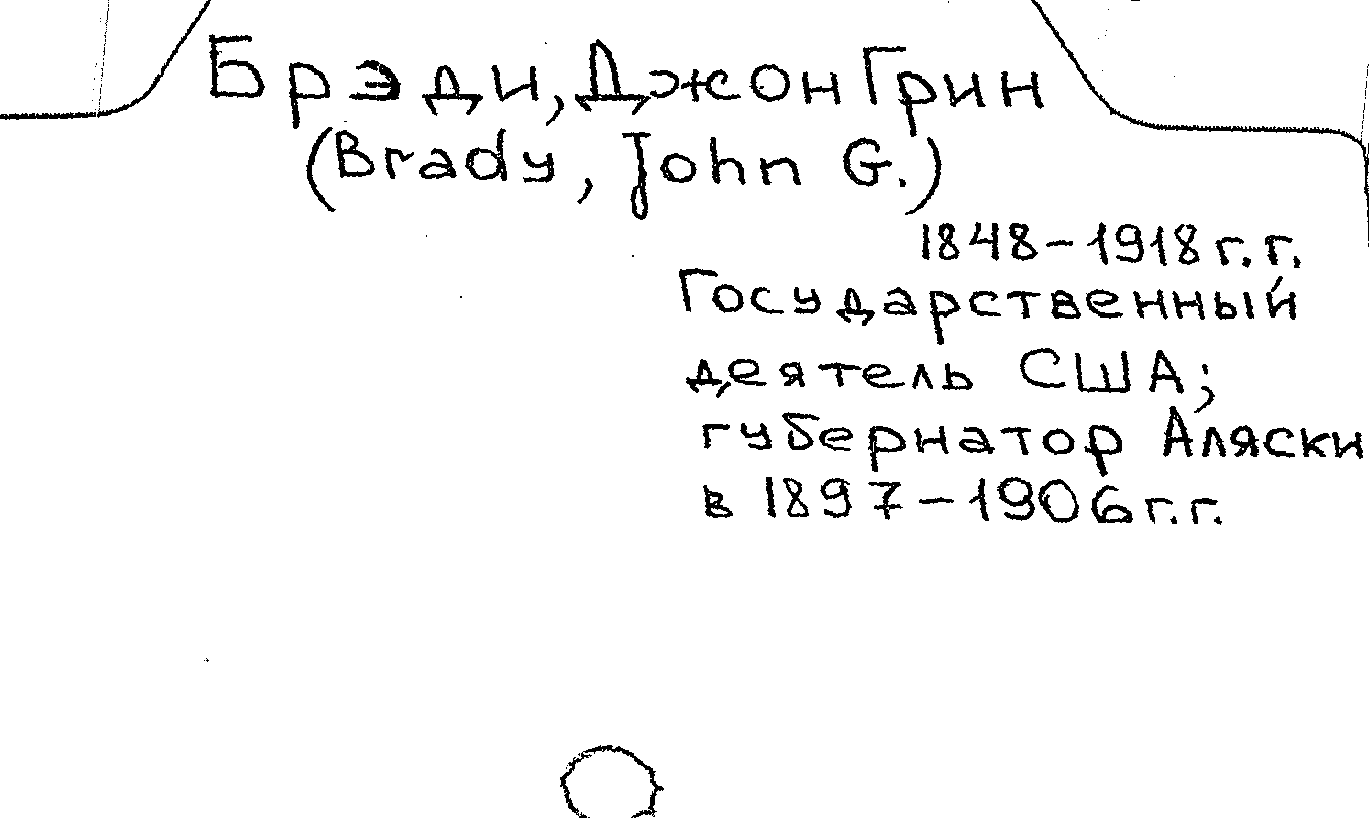 Брэди, Джон Грин
(Brady, John G.)
1848-1918 г.г.
Государственный
деятель США;
губернатор Аляски
в 1897-1906 г.г.